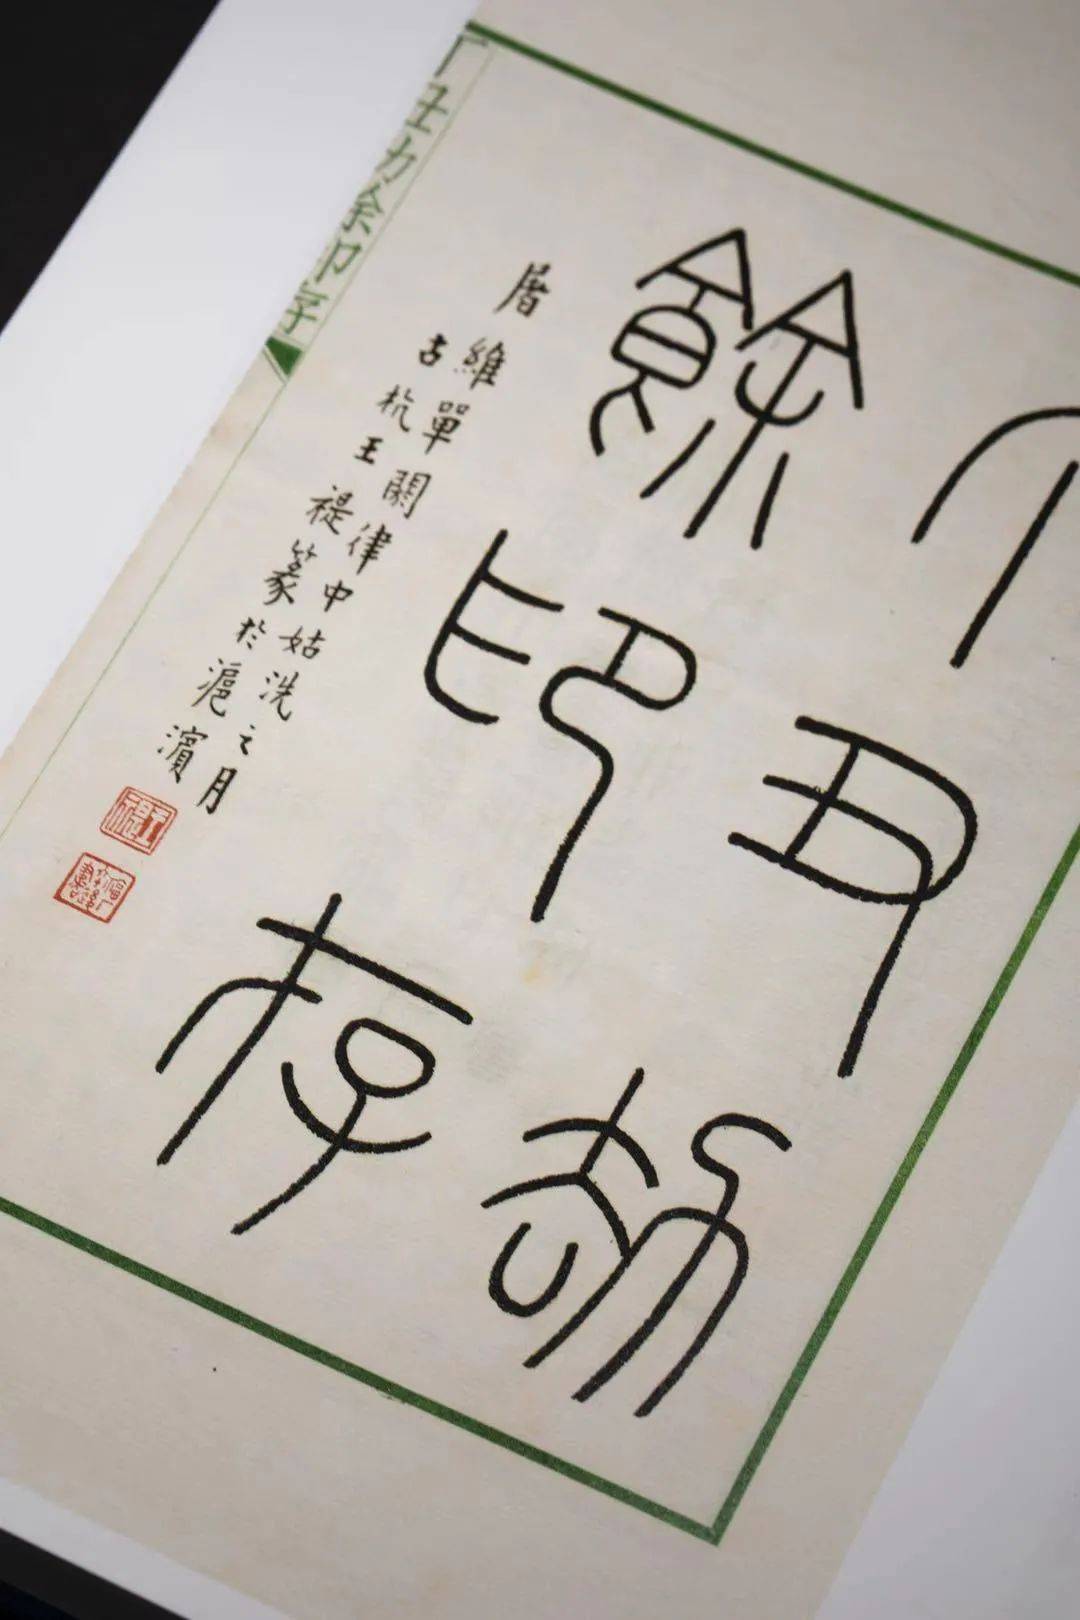 丁丑劫
餘印存
屠維單閼律中姑洗之月
古杭王禔篆於滬濱
王禔
丁丑劫餘印存